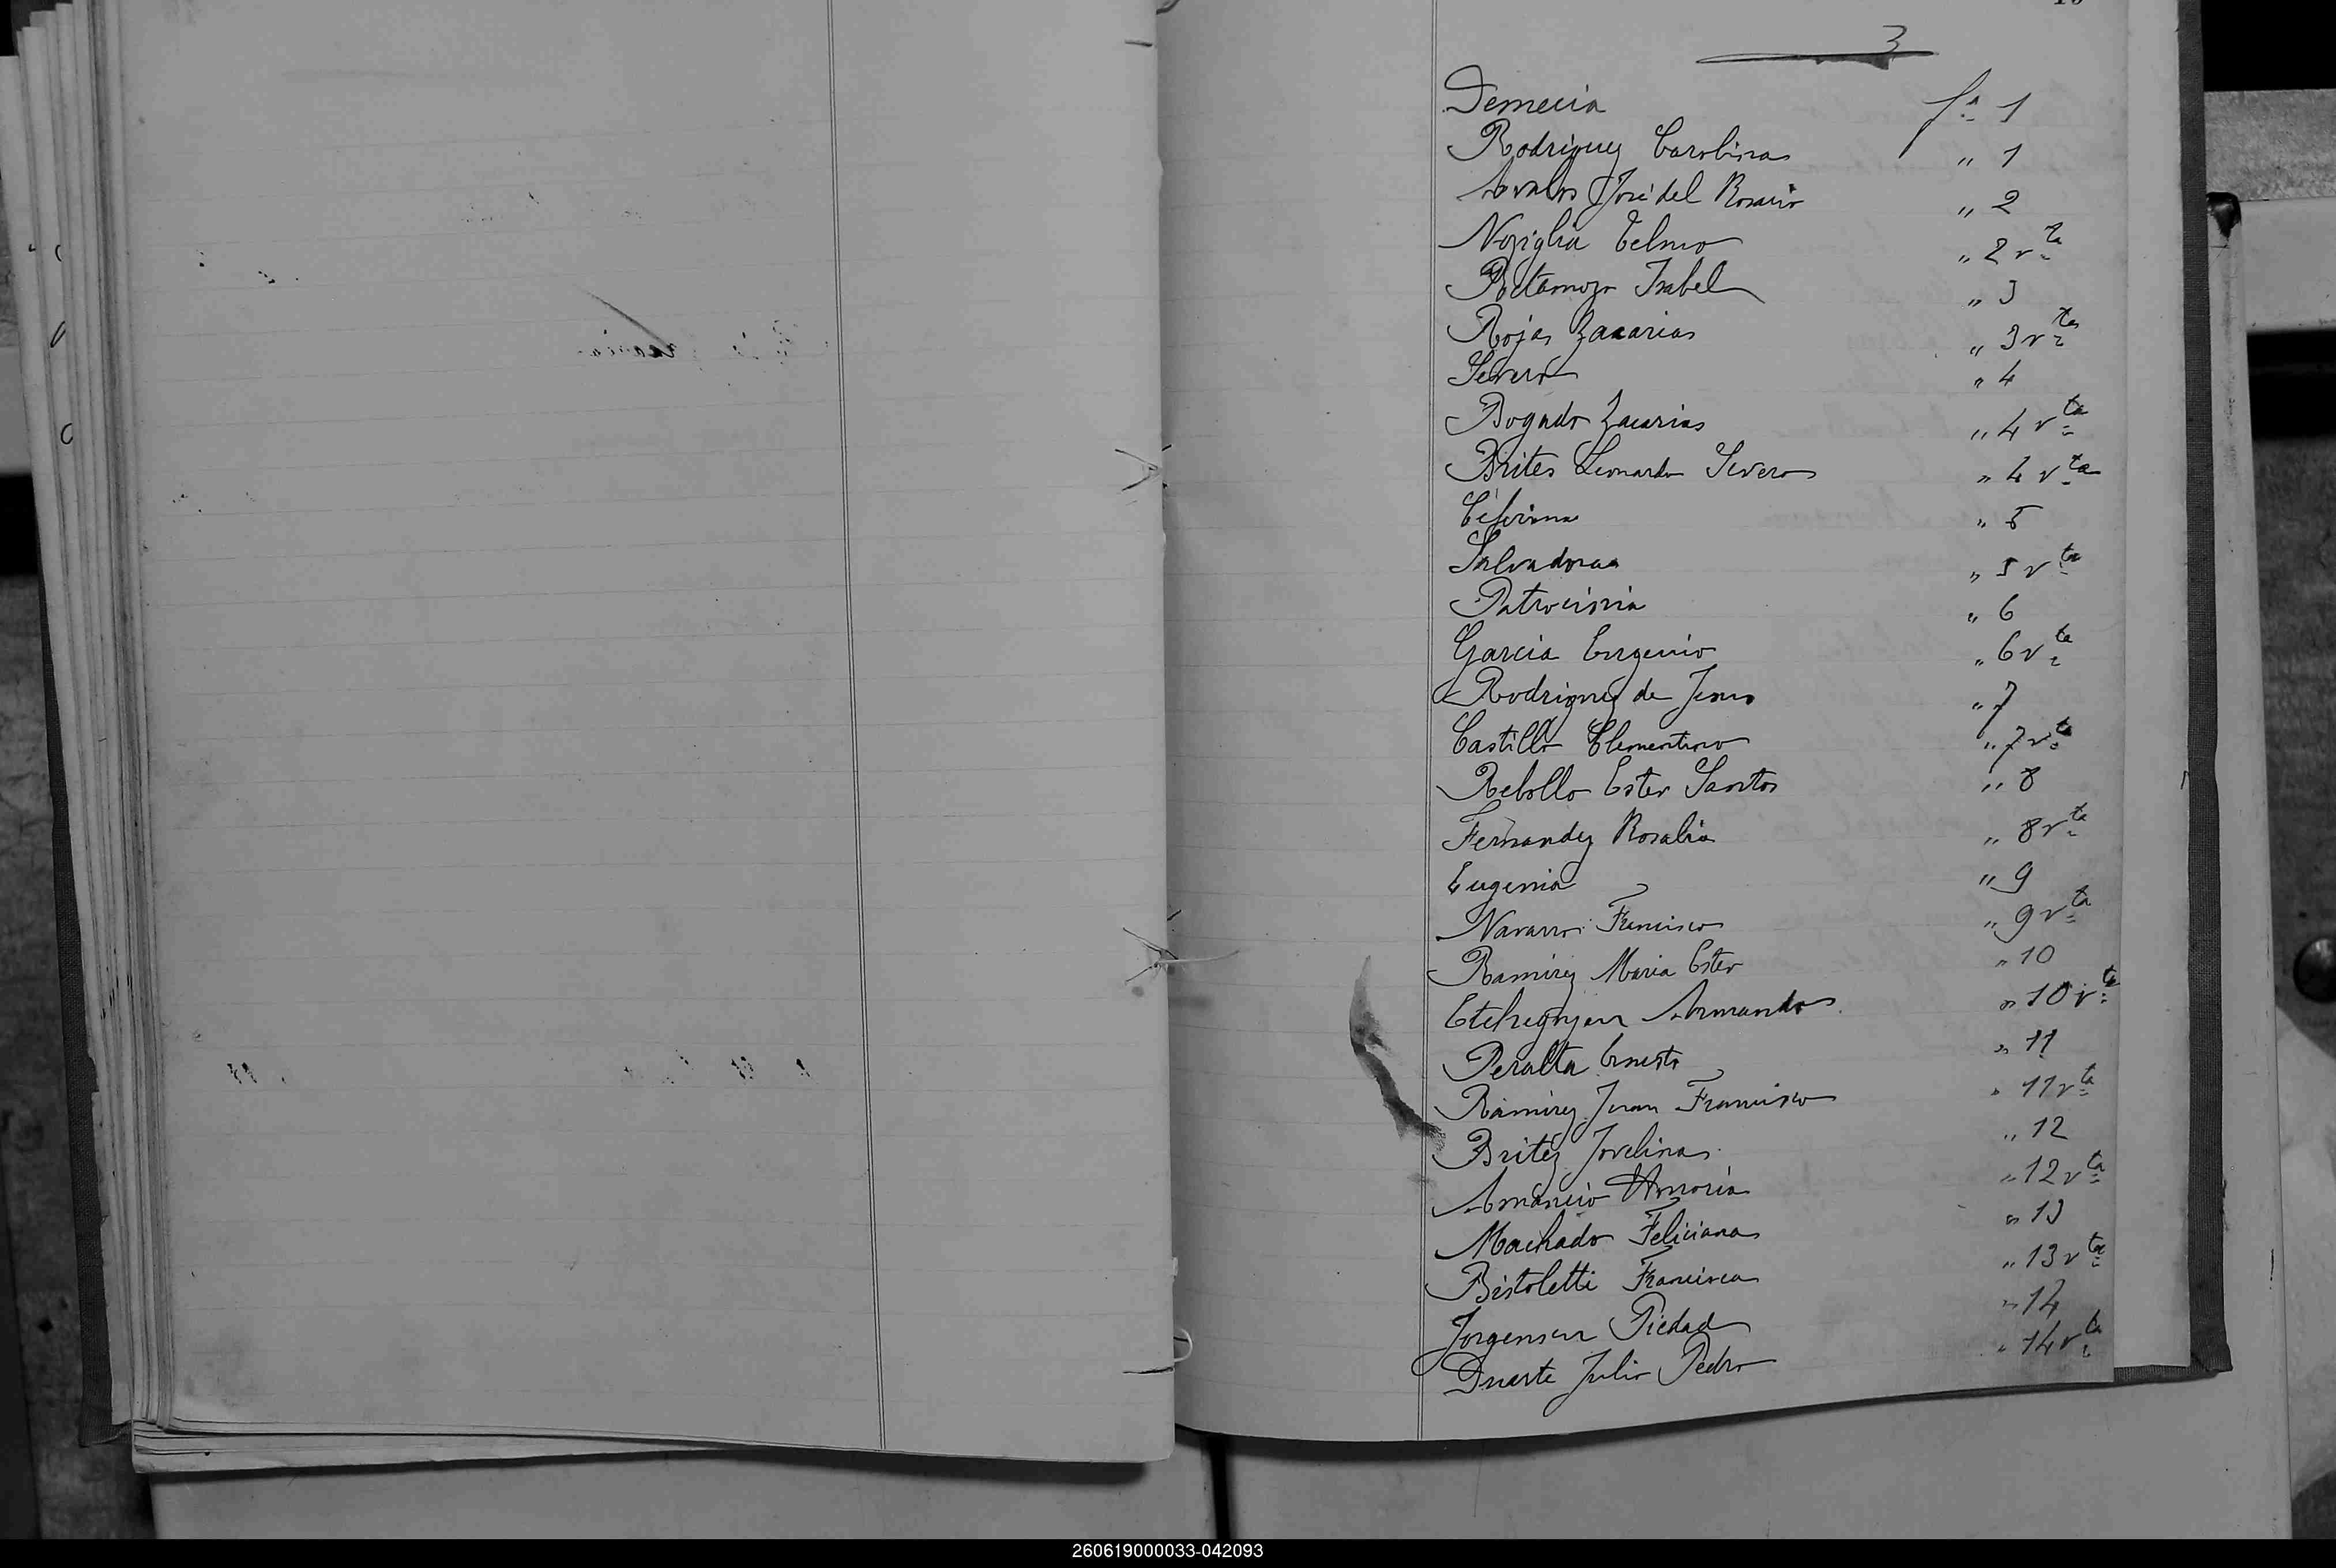 3
Demecia fa 1
Rodriguez Carolina " 1
Avalos José del Rosario " 2
Noziglia Telmo " 2 vta
Retamozo Isabel " 3
Rojas Zacarias " 3 vta
Severo " 4
Bogado Zacarias " 4 vta
Brites Leonardo Severo " 4 vta
Ceferina " 5
Salvadora " 5 vta
Patrocinia " 6
Garcia Eugenio " 6 vta
Rodriguez de Jesus " 7
Castillo Clementino " 7 vta
Rebollo Ester Santos " 8
Fernandez Rosalia " 8 vta
Eugenia " 9
Navarro Francisco " 9 vta
Ramirez Maria Ester " 10
Armando " 10 vta
Peralta Ernesto " 11
Ramirez Juan Francisco " 11 vta
Britez Jovelina " 12
Amancio " 12 vta
Machado Feliciana " 13
Bistoletti Francisca " 13 vta
Jorgensen Piedad " 14
Duarte Julio Pedro " 14 vta
260619000033-042093